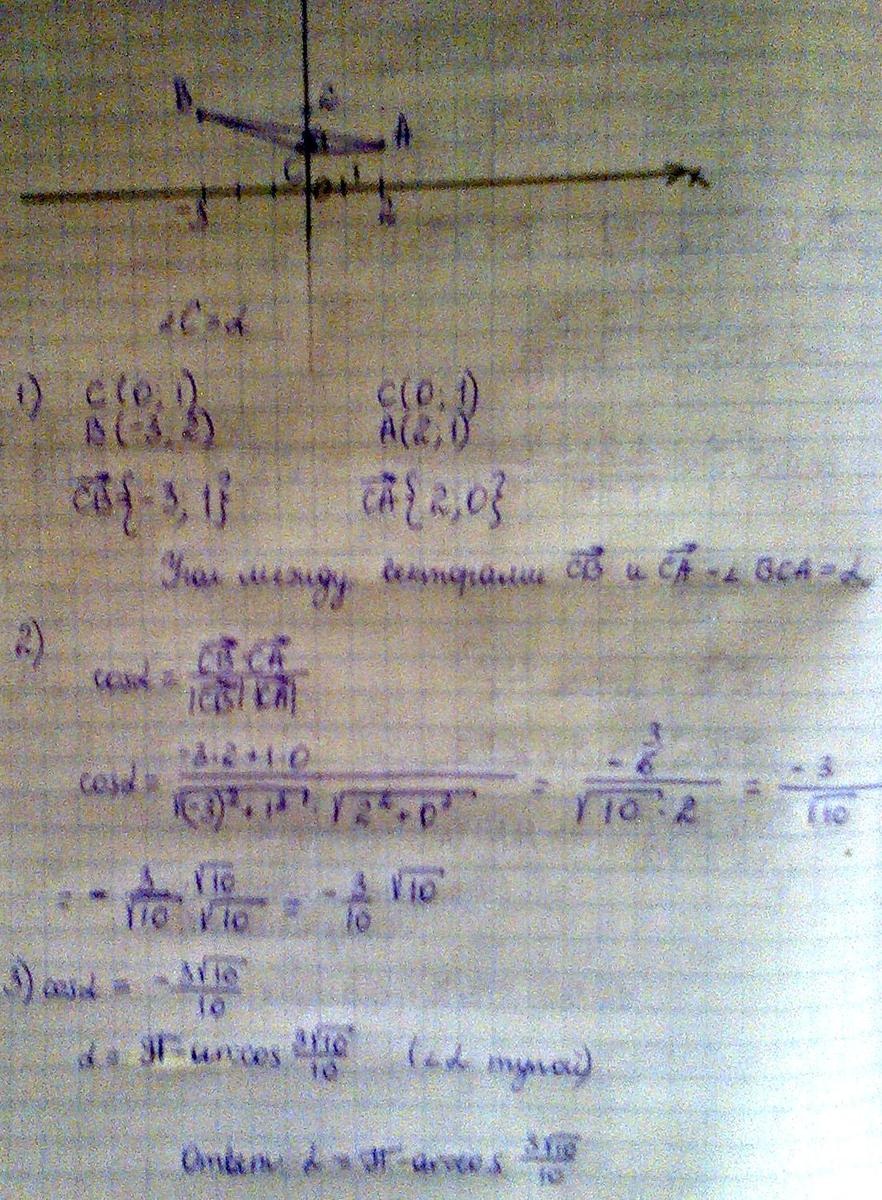 B 2 A
C 0 1 x
-3 2
∠C = α
1) C(0; 1) C(0; 1)
B(-3; 2) A(2; 1)
CB{-3; 1} CA{2; 0}
Угол между векторами CB и CA - ∠BCA = α
2)
cosα = CB·CA / |CB|·|CA|
cosα = -3·2+1·0 / √(-3)²+1² · √2²+0² = -6 3 / √10 · 2 = -3 / √10
= - 3/√10 · √10/√10 = - 3/10 √10
3) cosα = - 3√10/10
α = π - arccos 3√10/10 (∠α тупой)
Ответ: α = π - arccos 3√10/10